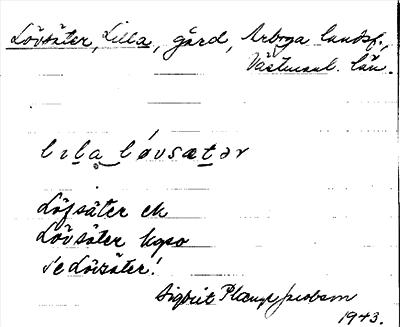 Lövsäter, Lilla, gård, Arboga landsf.,
Västmanl. län.
lɩla løvsætər
Löfsäter ek
Lövsäter kgso
Se Lövsäter!
Sigbrit Plænge Jacobson
1943.